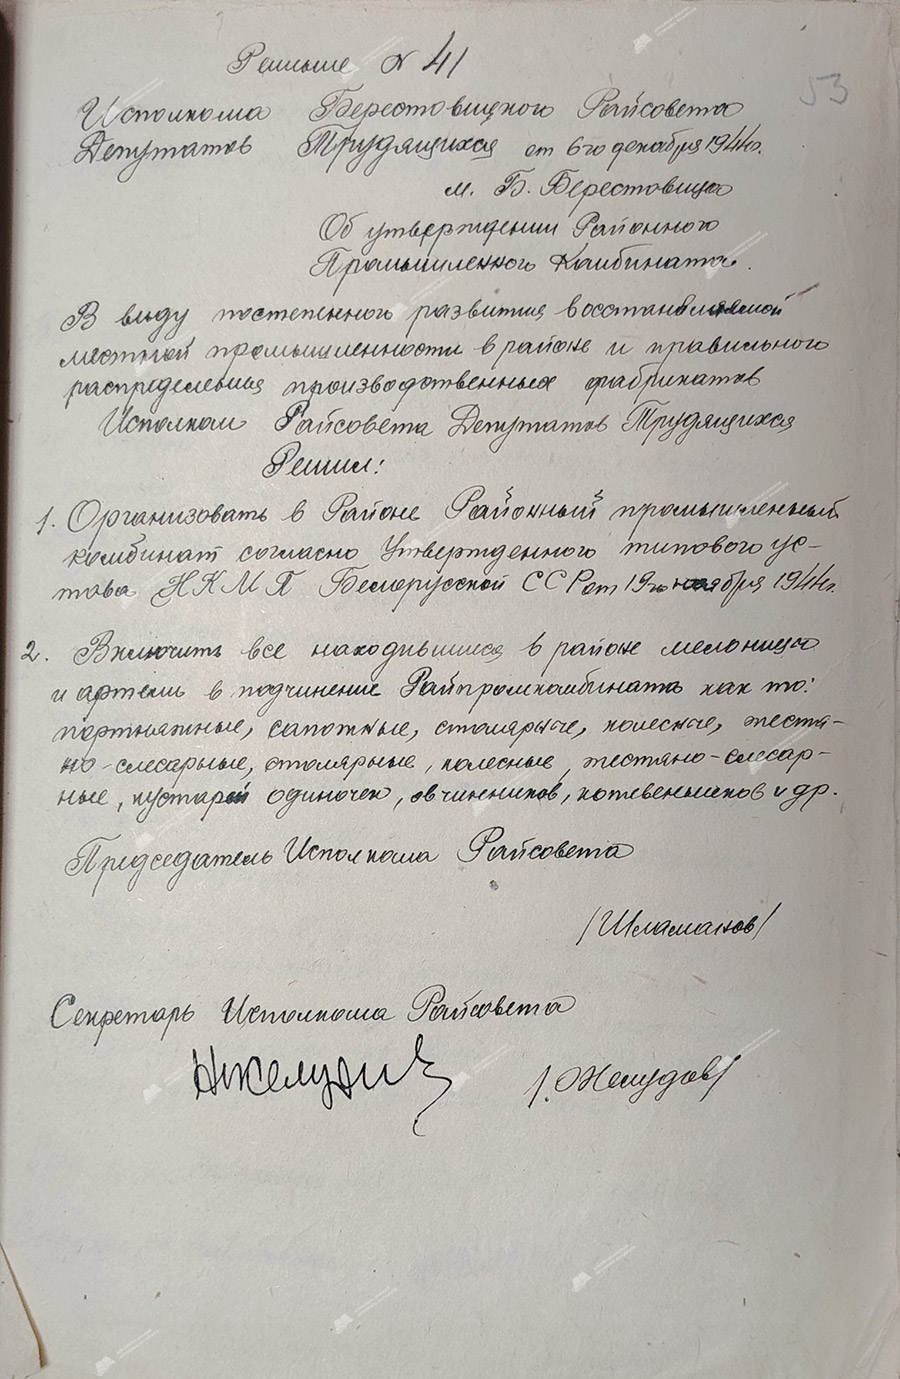 Решение № 41
53
Исполкома Берестовицкого Райсовета
Депутатов Трудящихся от 6го декабря 1944г.
м. Б. Берестовица
Об утверждении Районного
Промышленного Комбината.
В виду постепенного развития восстановляемой
местной промышленности в районе и правильного
распределения производственных фабрикатов
Исполком Райсовета Депутатов Трудящихся
Решил:
1. Организовать в Районе Районный промышленный
комбинат согласно Утвержденного типового ус-
тава НКМП Белорусской ССР от 19го ноября 1944г.
2. Включить все находившиеся в районе мельницы
и артели в подчинение Райпромкомбината как то:
портняжные, сапожные, столярные, колесные, жестя-
но-слесарные, столярные, колесные, жестяно-слесар-
ные, кустарей одиночек, овчинников, кожевенников и др.
Председатель Исполкома Райсовета
/Шламанов/
Секретарь Исполкома Райсовета
/. Желудов/